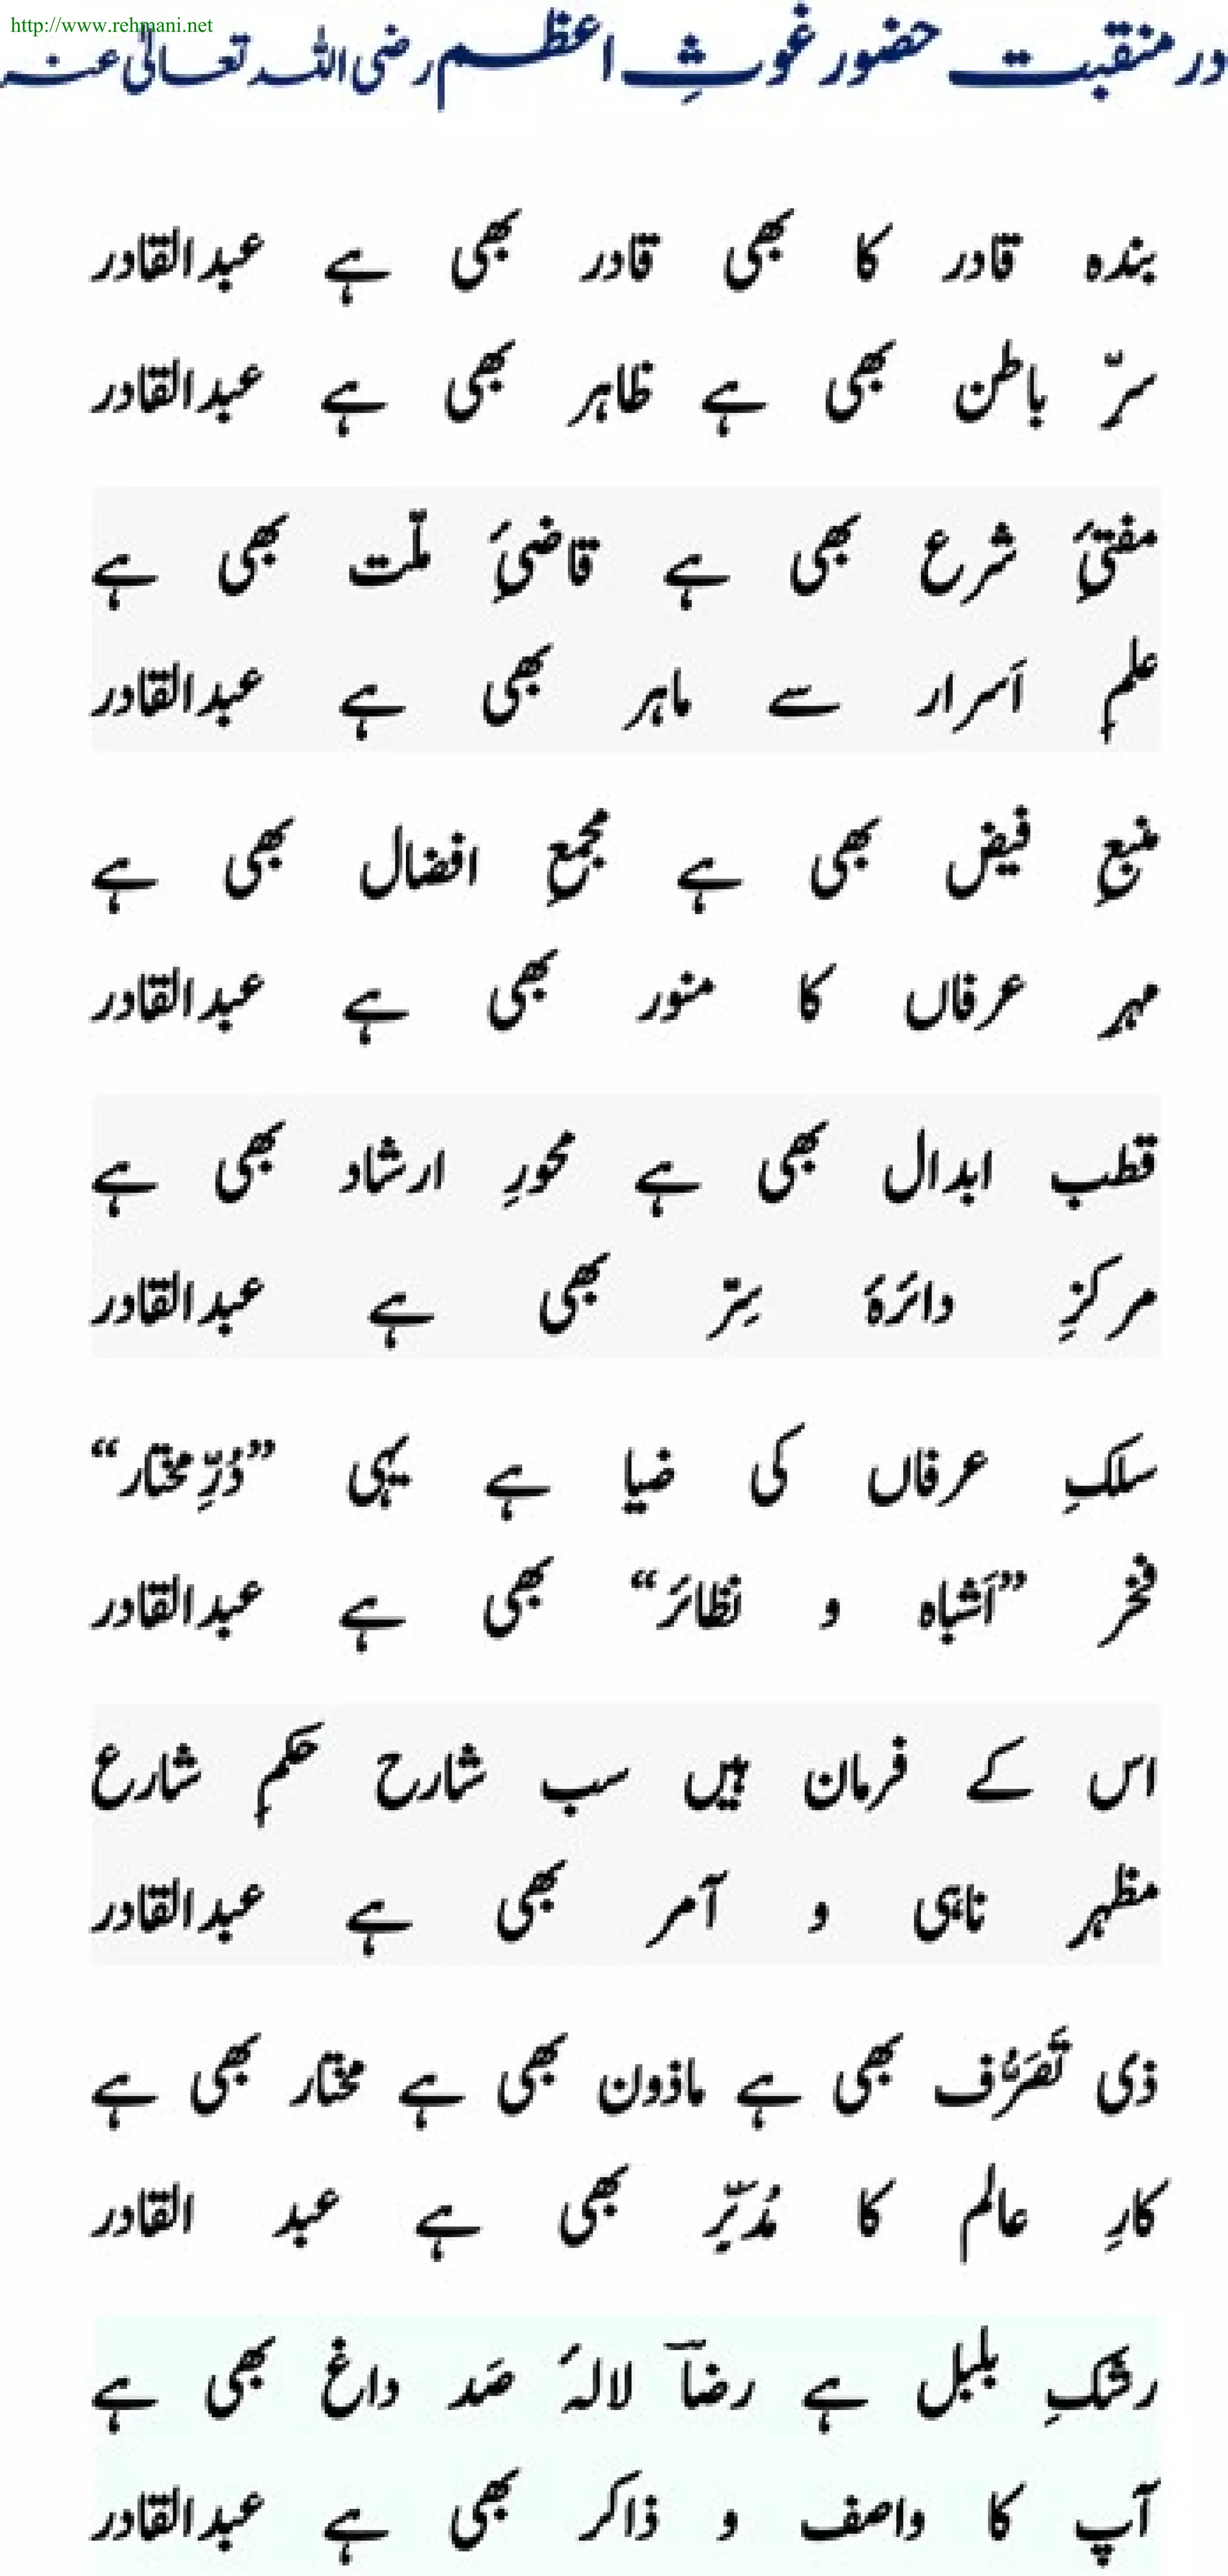 http://www.rehmani.net
در منقبت حضور غوثِ اعظم رضی اللہ تعالیٰ عنہ
بندہ قادر کا بھی قادر بھی ہے عبدالقادر
سرِّ باطن بھی ہے ظاہر بھی ہے عبدالقادر
مفتیِٔ شرع بھی ہے قاضیِٔ ملّت بھی ہے
علمِ اَسرار سے ماہر بھی ہے عبدالقادر
منبعِ فیض بھی ہے مجمعِ افضال بھی ہے
مہرِ عرفاں کا منور بھی ہے عبدالقادر
قطب ابدال بھی ہے محورِ ارشاد بھی ہے
مرکزِ دائرۂ سِرّ بھی ہے عبدالقادر
سلکِ عرفاں کی ضیا ہے یہی ”دُرِّ مختار“
فخر ”اَشباہ و نظائر“ بھی ہے عبدالقادر
اس کے فرمان ہیں سب شارح حکمِ شارع
مظہر ناہی و آمر بھی ہے عبدالقادر
ذی تَصَرُّف بھی ہے ماذون بھی ہے مختار بھی ہے
کارِ عالم کا مُدبِّر بھی ہے عبد القادر
رشکِ بلبل ہے رضاؔ لالۂ صَد داغ بھی ہے
آپ کا واصف و ذاکر بھی ہے عبدالقادر